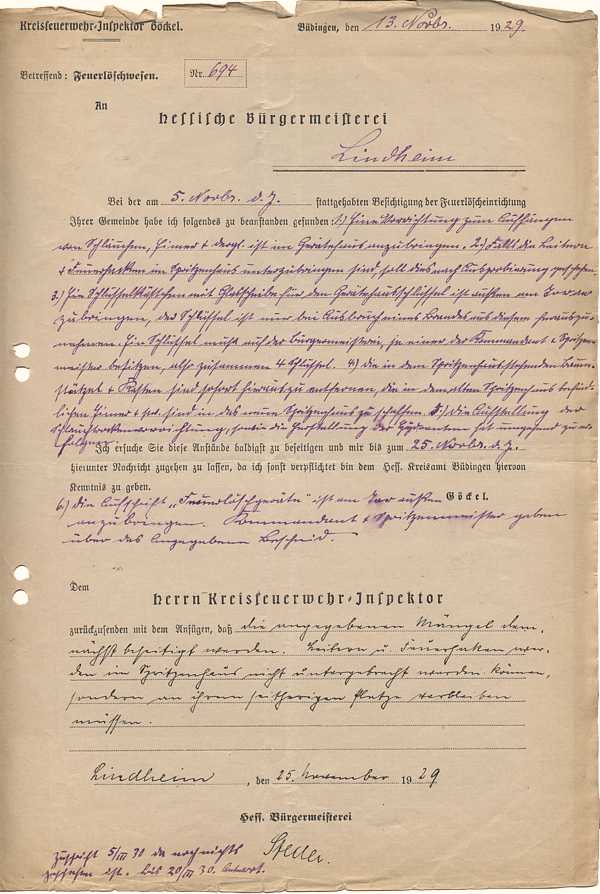 Kreisfeuerwehr-Inspektor Göckel.
Büdingen, den 13. Novbr. 1929.
Betreffend: Feuerlöschwesen.
Nr. 694
An
Hessische Bürgermeisterei
Lindheim
Bei der am 5. Novbr. d. J. stattgehabten Besichtigung der Feuerlöscheinrichtung
Ihrer Gemeinde habe ich folgendes zu beanstanden gefunden: 1.) Eine Vorrichtung zum Aufhängen
von Schläuchen, Eimer & dergl. ist im Gerätehaus anzubringen. 2.) Falls die Leitern
& Feuerhacken im Spritzenhaus unterzubringen sind, soll dies nach Ausprobierung geschehen.
3.) Ein Schlüsselkästchen mit Glasscheibe für den Gerätehausschlüssel ist außen am Tor an
zubringen, der Schlüssel ist nur bei Ausbruch eines Brandes aus diesem herauszu-
nehmen. Ein Schlüssel muß auf der Bürgermeisterei, je einer der Kommandant & Spritzen-
meister besitzen, also zusammen 4 Schlüssel. 4.) die in dem Spritzenhaus stehenden Baum-
stützel & Kasten sind sofort hieraus zu entfernen, die in dem alten Spritzenhaus befind-
lichen Eimer & sol. sind in das neue Spritzenhaus zu schaffen. 5.) die Aufstellung der
Schlauchtrockenvorrichtung, sowie die Herstellung der Hydranten hat umgehend zu er-
folgen.
Ich ersuche Sie diese Anstände baldigst zu beseitigen und mir bis zum 25. Novbr. d. J.
hierunter Nachricht zugehen zu lassen, da ich sonst verpflichtet bin dem Hess. Kreisamt Büdingen hiervon
Kenntnis zu geben.
Göckel.
6.) die Aufschrift „Feuerlöschgeräte" ist am Tor außen
anzubringen. Kommandant & Spritzenmeister geben
über das Angegebene Bescheid.
Dem
Herrn Kreisfeuerwehr-Inspektor
zurückzusenden mit dem Anfügen, daß die angegebenen Mängel dem-
nächst beseitigt werden. Leitern u. Feuerhaken wer-
den im Spritzenhaus nicht untergebracht werden können,
sondern an ihrem seitherigen Platze verbleiben
müssen.
Lindheim, den 25. November 1929
Hess. Bürgermeisterei
5/III 30 da noch nichts
geschehen ist. bis 20/III 30. Antwort.